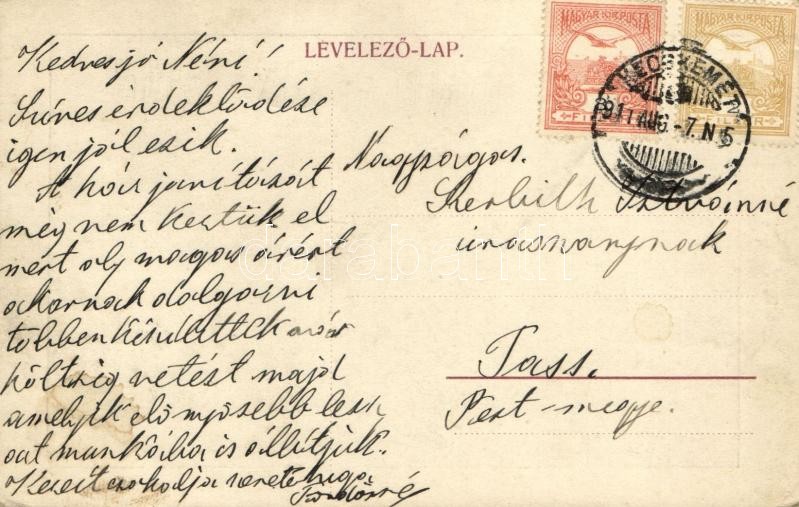 LEVELEZŐ-LAP.
MAGYAR KIR. POSTA
MAGYAR KIR. POSTA
KECSKEMÉT
911 AUG. -7. N 5
Kedves jó Néni!
Szíves érdeklődése
igen jól esik.
A ház javítását
még nem kezdtük el
mert oly magas árért
akarnak dolgozni
többen készítettek
költség vetést majd
amelyik előnyösebb lesz
azt munkába is állítjuk.
Kezeit csókolja szerető huga
Nagyságos.
Istvánné
úrasszonynak
Tass.
Pest-megye.
darabanth